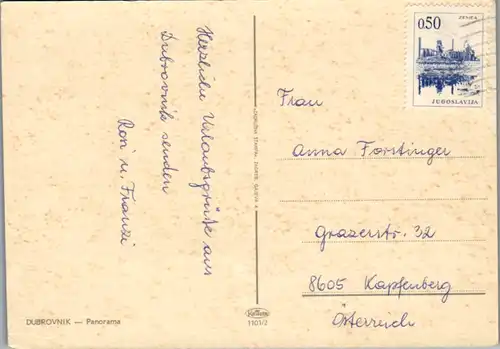 Herzliche Urlaubsgrüße aus
Dubrovnik senden
Roni u. Franzi
DUBROVNIK — Panorama
1101/2
0.50
ZENICA
JUGOSLAVIJA
Frau
Anna Forstinger
Grazerstr. 32
8605 Kapfenberg
Österreich